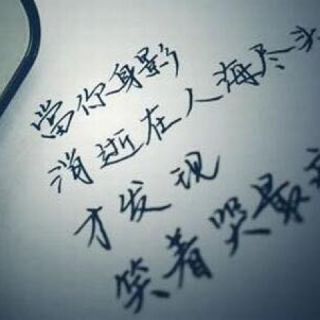 當你身影
消逝在人海尽头
才发现
笑着哭最